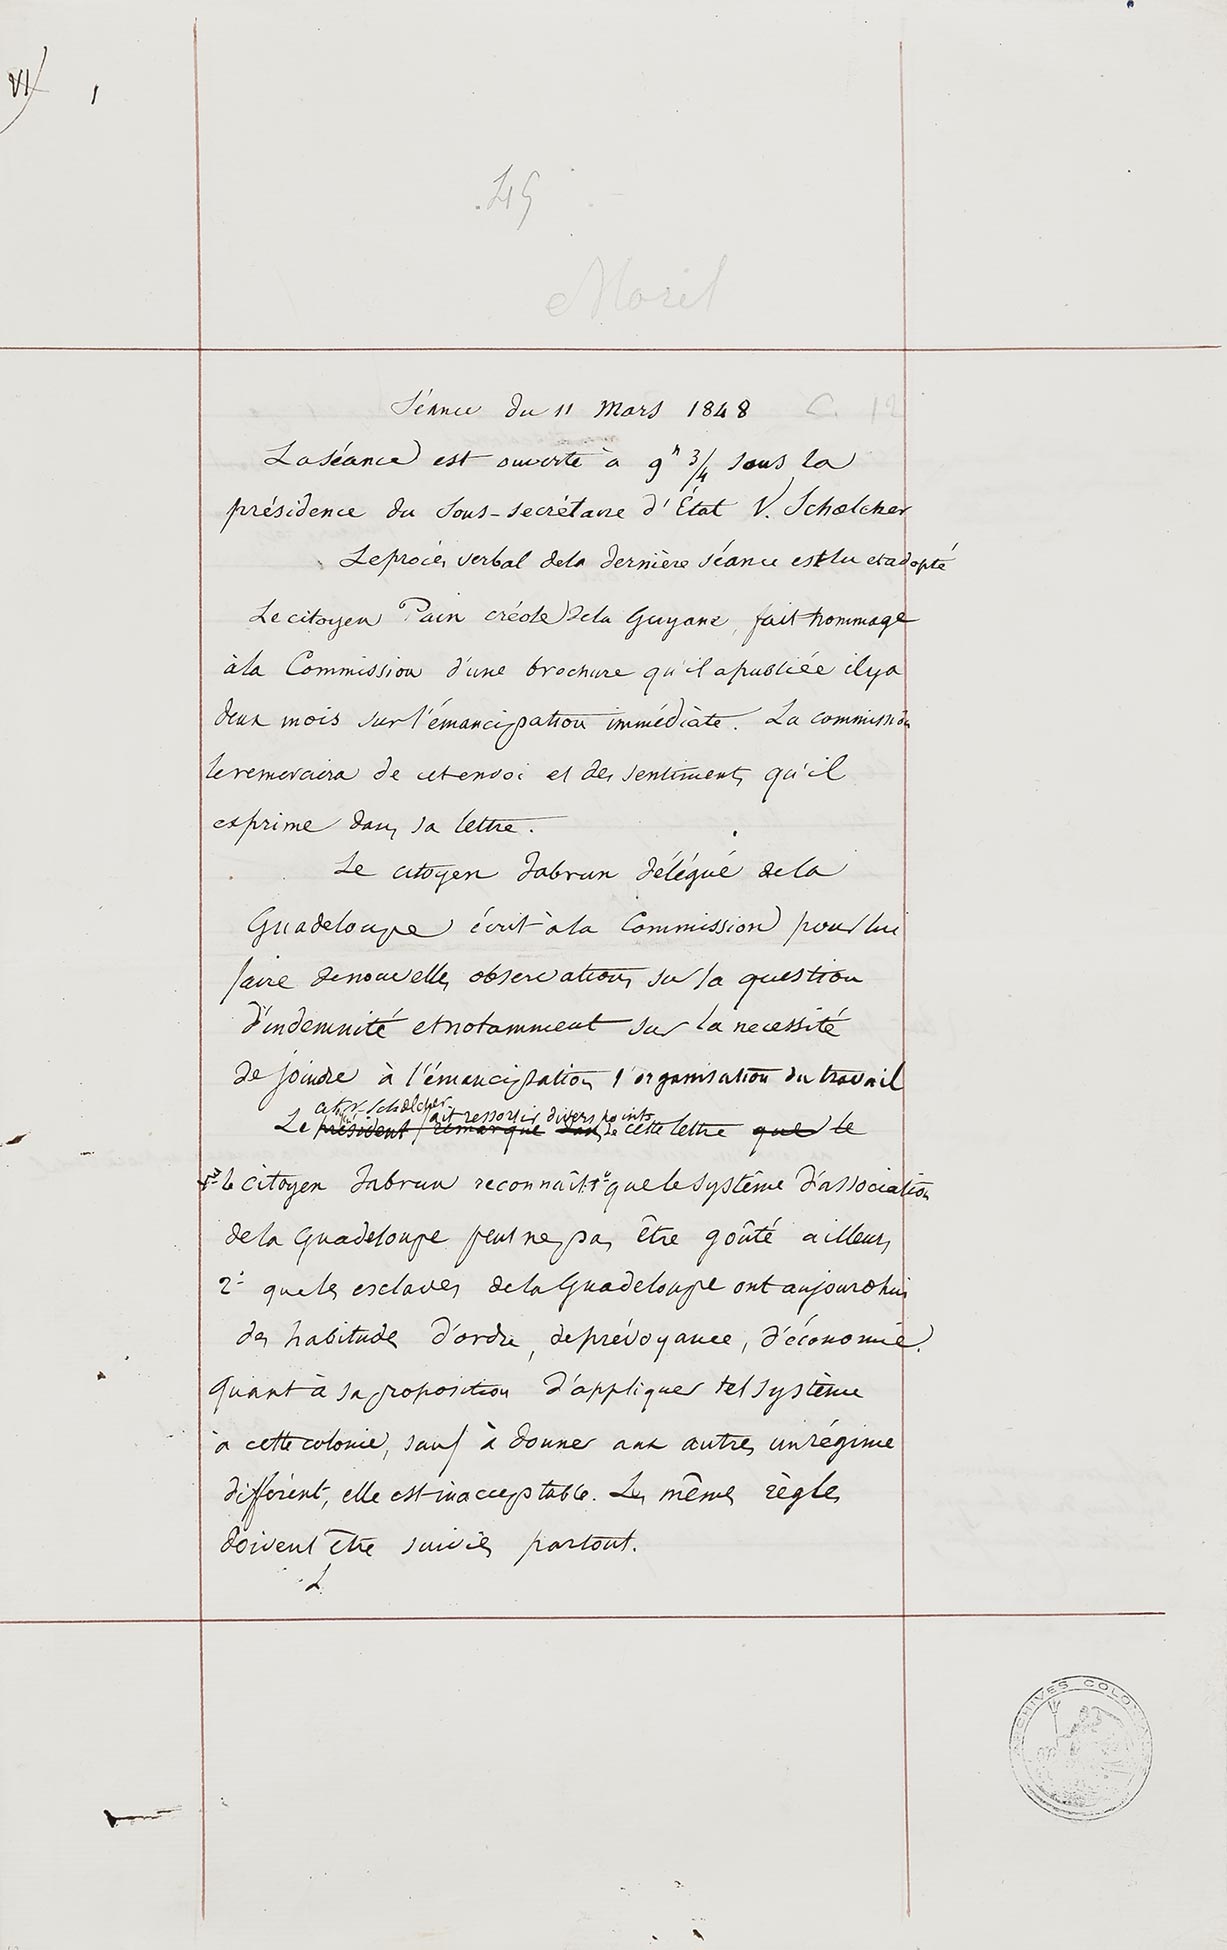 VI
1
45
Moril
Séance du 11 Mars 1848
C. 12
La séance est ouverte à 9h 3/4 sous la
présidence du Sous-secrétaire d'État V. Schœlcher
Le procès verbal de la dernière séance est lu et adopté
Le citoyen Pain créole de la Guyane, fait hommage
à la Commission d'une brochure qu'il a publiée il y a
deux mois sur l'émancipation immédiate. La commission
le remerciera de cet envoi et des sentiments qu'il
exprime dans sa lettre.
Le citoyen Jabrun délégué de la
Guadeloupe écrit à la Commission pour lui
faire de nouvelles observations sur la question
d'indemnité et notamment sur la necessité
de joindre à l'émancipation l'organisation du travail
citn V. Schœlcher fait ressortir divers points
Le président remarque dans de cette lettre que le
le citoyen Jabrun reconnaît 1º que le système d'association
de la Guadeloupe peut ne pas être goûté ailleurs
2º que les esclaves de la Guadeloupe ont aujourdhui
des habitudes d'ordre, de prévoyance, d'économie.
Quant à sa proposition d'appliquer tel système
à cette colonie, sauf à donner aux autres un régime
différent, elle est inacceptable. Les mêmes règles
doivent être suivies partout.
L
ARCHIVES COLONIALES